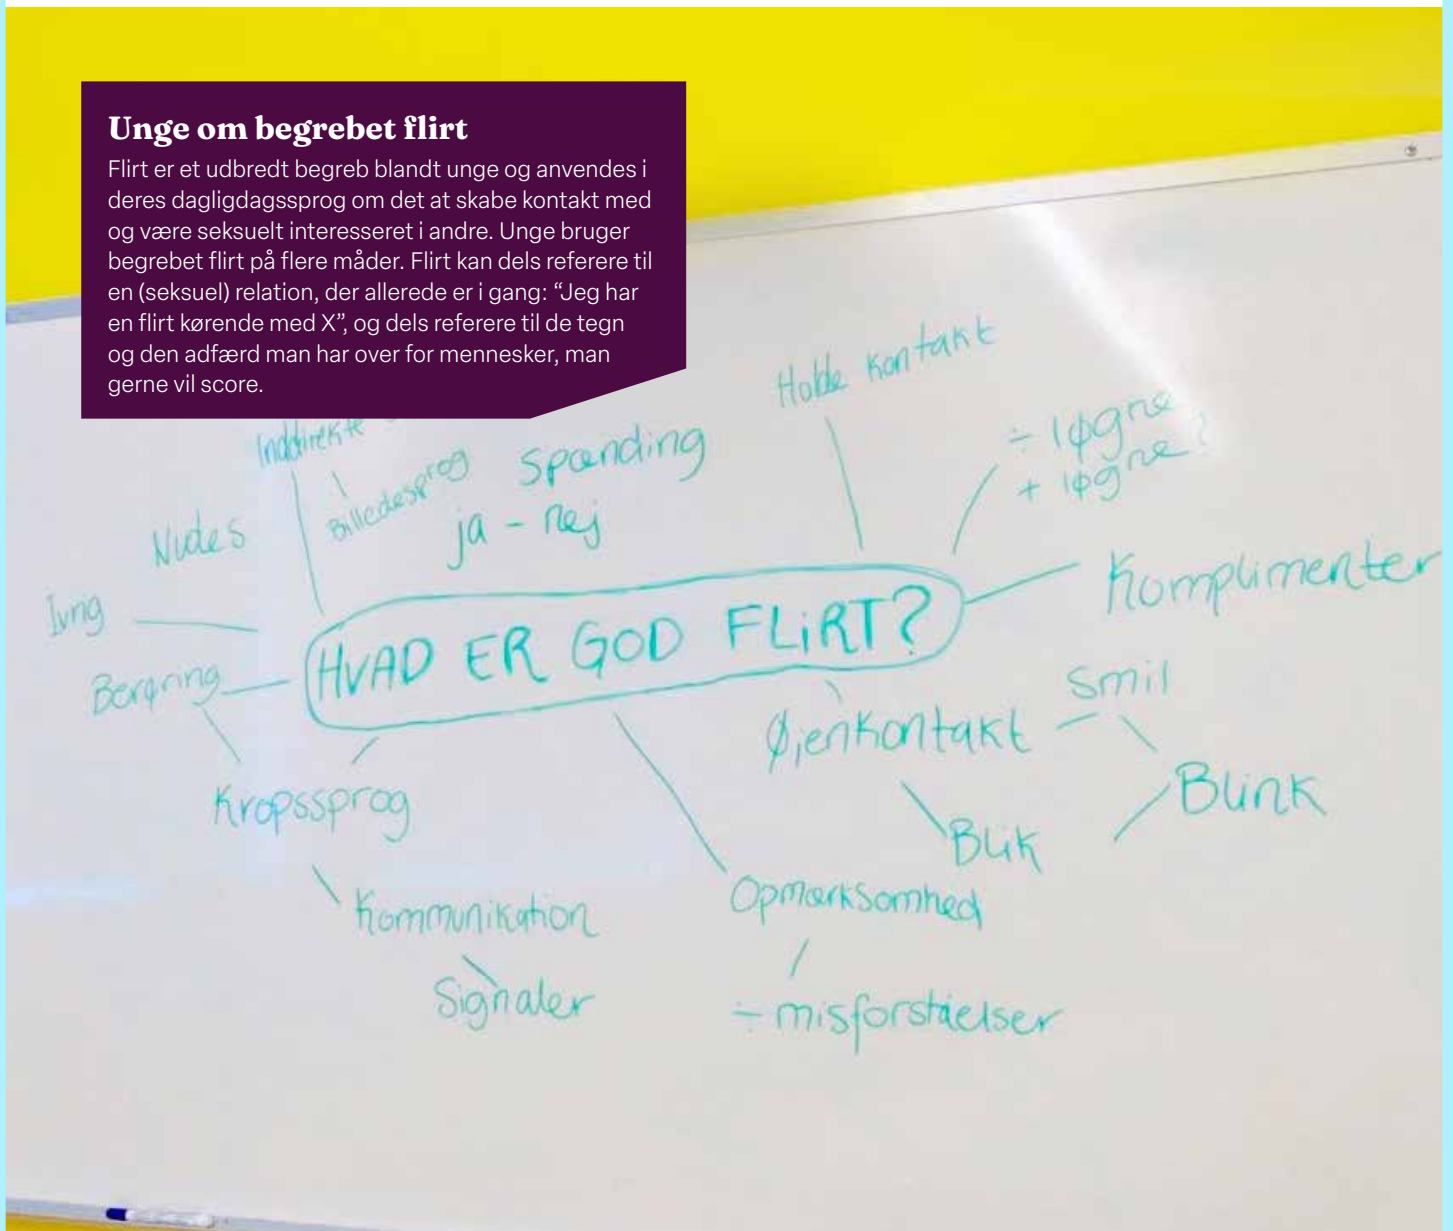 Unge om begrebet flirt
Flirt er et udbredt begreb blandt unge og anvendes i
deres dagligdagssprog om det at skabe kontakt med
og være seksuelt interesseret i andre. Unge bruger
begrebet flirt på flere måder. Flirt kan dels referere til
en (seksuel) relation, der allerede er i gang: “Jeg har
en flirt kørende med X”, og dels referere til de tegn
og den adfærd man har over for mennesker, man
gerne vil score.
Holde kontakt
Inddirekte
Billedesprog
Spænding
ja - nej
÷ løgne
+ løgne?
Nudes
Komplimenter
Ivrig
HVAD ER GOD FLiRT?
Berøring
Smil
Øjenkontakt
Blink
Kropssprog
Blik
Opmærksomhed
Kommunikation
Signaler
÷ misforståelser